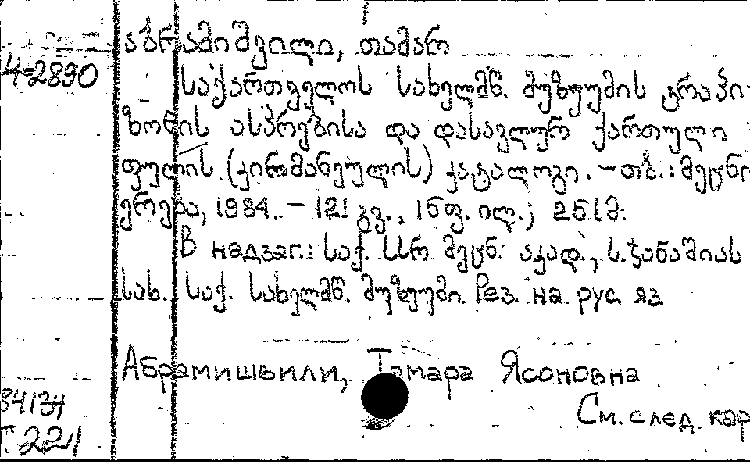 აბრამიშვილი, თამარ
4-2890
საქართველოს სახელმწ. მუზეუმის ტრაპი
ზონის ასპრებისა და დასავლურ ქართული
ფულის (კირმანეულის) კატალოგი. – თბ.: მეცნი
ერება, 1984. – 121 გვ., 15 ფ. ილ.; 25 სმ.
В надзаг.: საქ. სსრ მეცნ. აკად., ს. ჯანაშიას
სახ. საქ. სახელმწ. მუზეუმი. Рез. на рус яз
Абрамишвили, Тамара Ясоновна
84134
См. след. кар
221